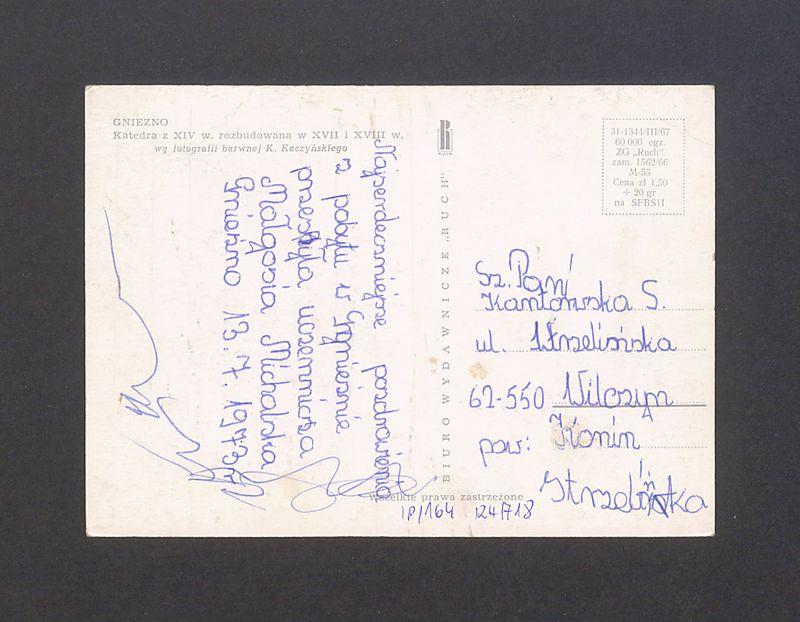 GNIEZNO
Katedra z XIV w. rozbudowana w XVII i XVIII w.
wg fotografii barwnej K. Kaczyńskiego
Najserdeczniejsze pozdrowienia
z pobytu w Gnieźnie
przesyła uczennica
Małgosia Michalska
Gniezno 13.7.1973r
Wszelkie prawa zastrzeżone
BIURO WYDAWNICZE „RUCH"
RUCH
31-1344/III/67
60 000 egz.
ZG „Ruch"
zam. 1562/66
M-55
Cena zł 1,50
+ 20 gr
na SFBSiI
Sz. Pani
Kantowska S.
ul. Strzelińska
62-550 Wilczyn
pow: Konin
Strzelińska
IP/164 124/718